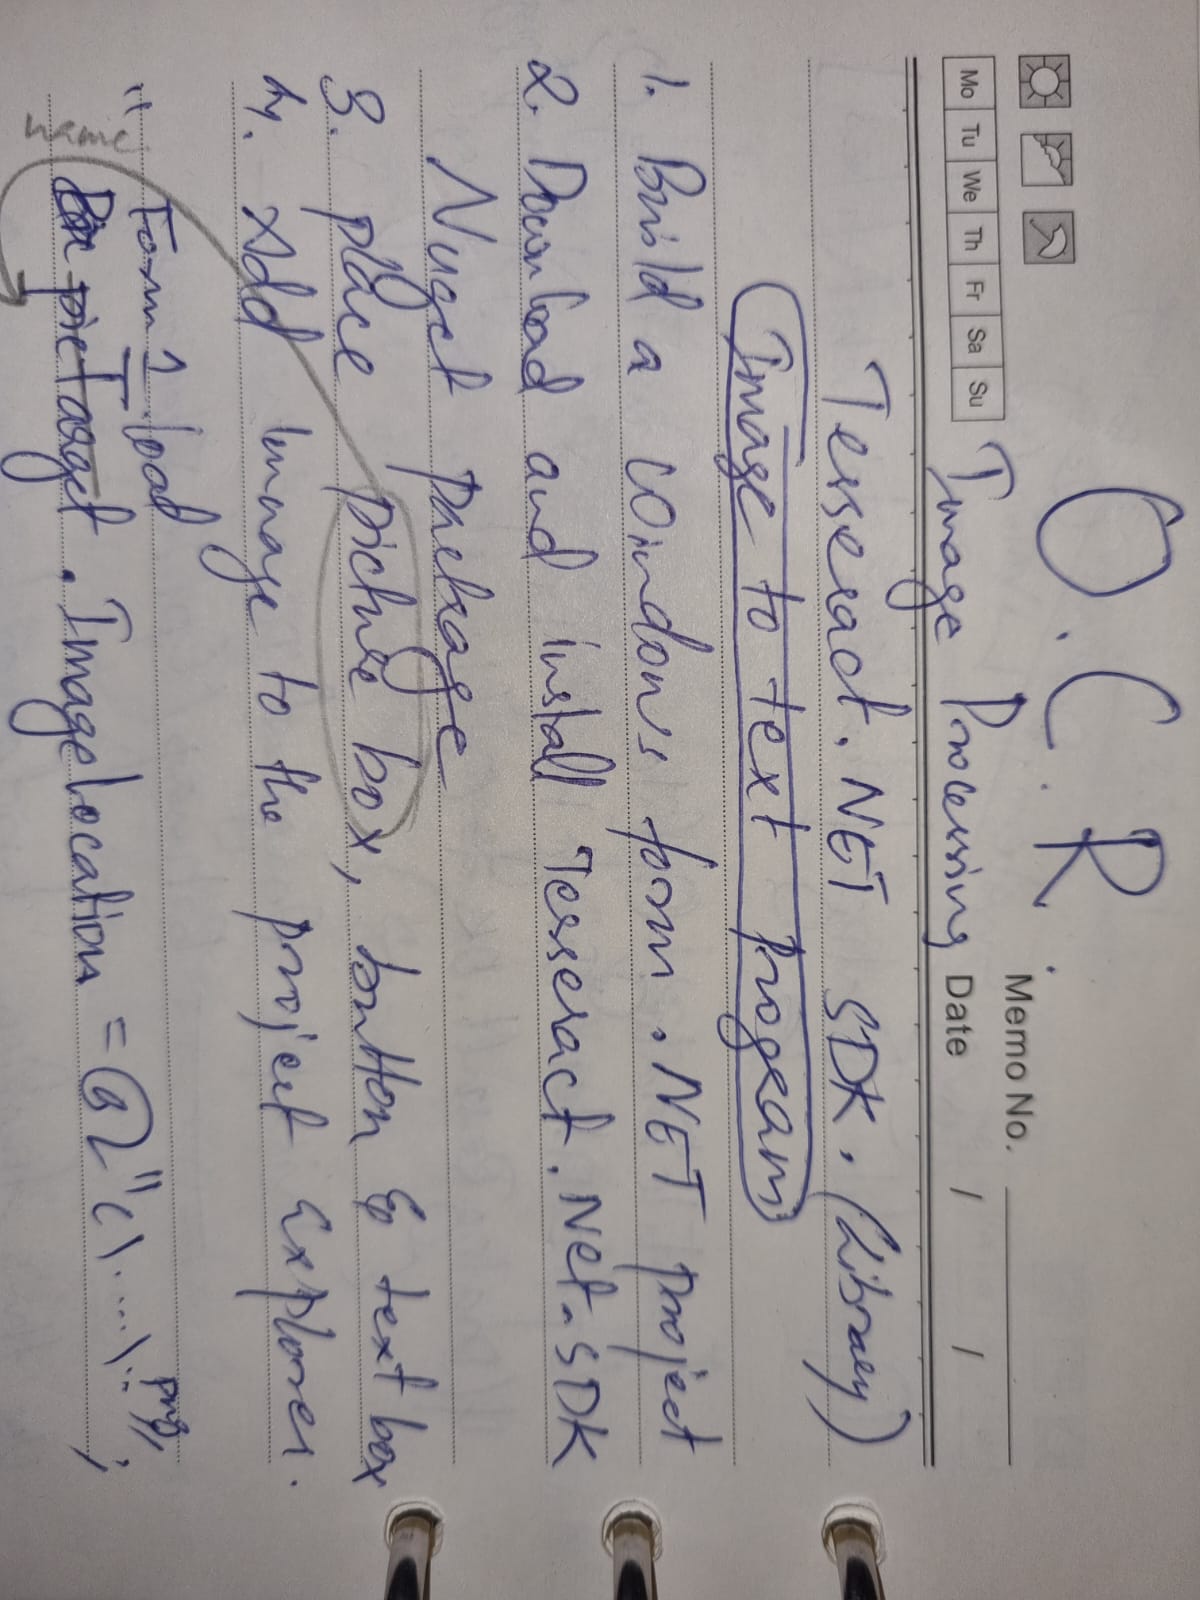 O.C.R.
Memo No.
Mo Tu We Th Fr Sa Su
Image Processing
Date / /
Tesseract.NET SDK. (Library)
Image to text program
1. Build a windows form .NET project
2. Download and install Tesseract.Net.SDK
Nuget package
3. place picture box, button & text box
4. Add Image to the project Explorer.
" Form1.load
name
picTarget.ImageLocation = @"C\....\..png";